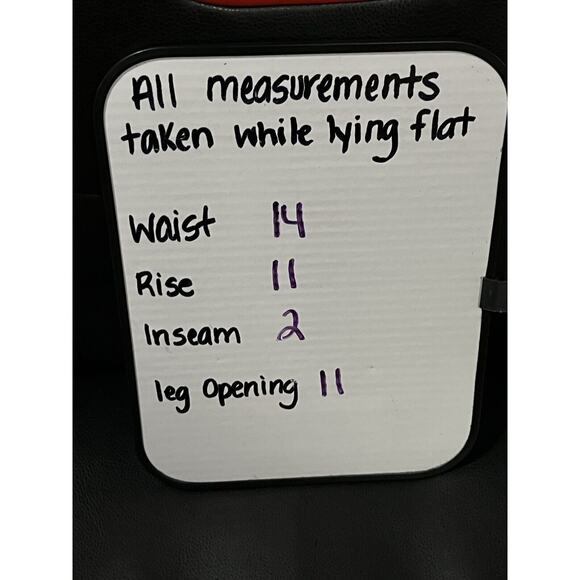 All measurements
taken while lying flat
Waist 14
Rise 11
Inseam 2
leg Opening 11